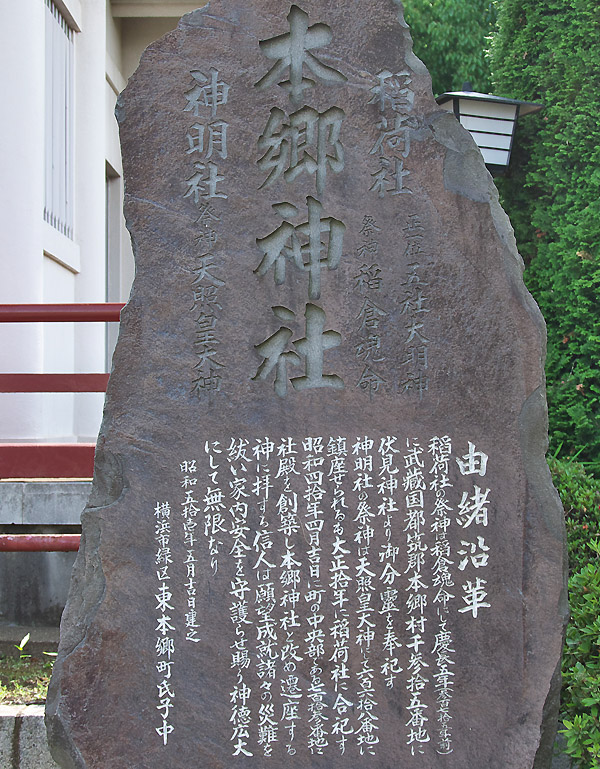 稲荷社
正一位 五社大明神
祭神 稲倉魂命
本郷神社
神明社
祭神 天照皇大神
由緒沿革
稲荷社の祭神は稲倉魂命にして慶長五年
に武蔵国都筑郡本郷村千参拾五番地に
伏見神社より御分霊を奉祀す
神明社の祭神は天照皇大神にして六百六拾八番地に
鎮座せられるも大正拾年に稲荷社に合祀す
昭和四拾年四月吉日に町の中央部である
社殿を創築し本郷神社と改め遷座する
神に拝する信人は願望成就諸々の災難を
祓い家内安全を守護らせ賜り神徳広大
にして無限なり
昭和五拾壱年五月吉日建之
横浜市緑区東本郷町氏子中